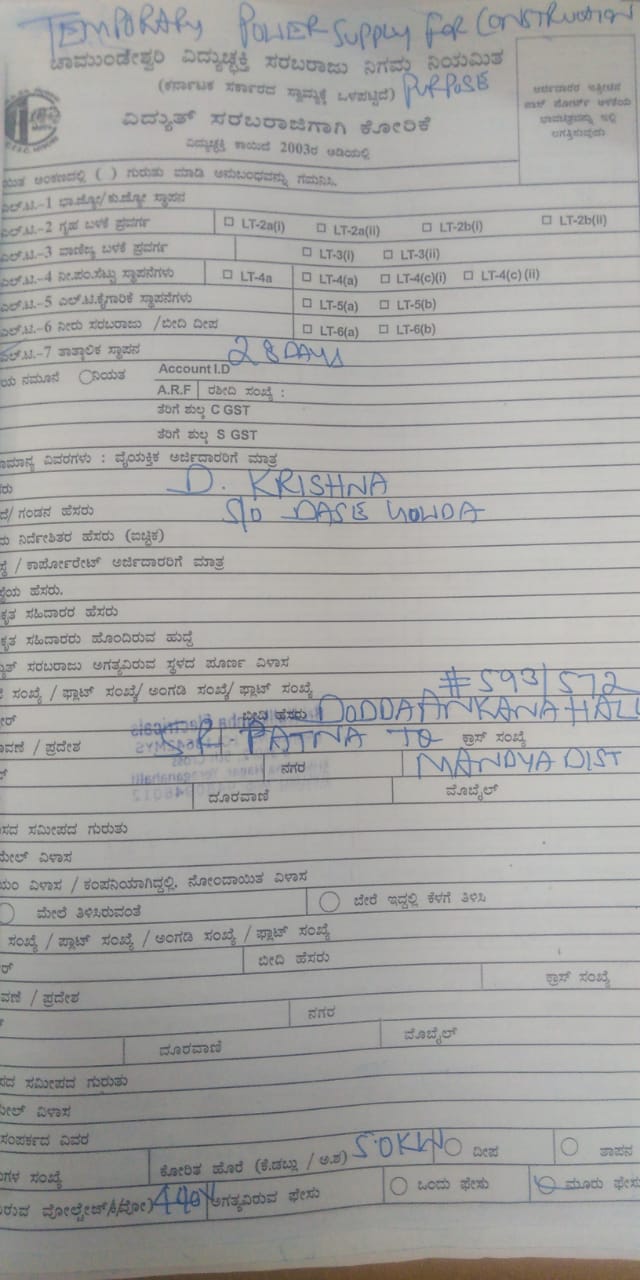 TEMPORARY POWER SUPPLY FOR CONSTRUCTION
ಚಾಮುಂಡೇಶ್ವರಿ ವಿದ್ಯುಚ್ಛಕ್ತಿ ಸರಬರಾಜು ನಿಗಮ ನಿಯಮಿತ
(ಕರ್ನಾಟಕ ಸರ್ಕಾರದ ಸ್ವಾಮ್ಯಕ್ಕೆ ಒಳಪಟ್ಟಿದೆ) PURPOSE
ವಿದ್ಯುತ್ ಸರಬರಾಜಿಗಾಗಿ ಕೋರಿಕೆ
ವಿದ್ಯುಚ್ಛಕ್ತಿ ಕಾಯಿದೆ 2003ರ ಅಡಿಯಲ್ಲಿ
ಅಂಕಣದಲ್ಲಿ ( ) ಗುರುತು ಮಾಡಿ ಅನುಬಂಧವನ್ನು ಗಮನಿಸಿ.
ಎಲ್.ಟಿ.-1 ಭಾ.ಜ್ಯೋ/ಕು.ಜ್ಯೋ ಸ್ಥಾಪನ
ಎಲ್.ಟಿ.-2 ಗೃಹ ಬಳಕೆ ಪ್ರವರ್ಗ LT-2a(i) LT-2a(ii) LT-2b(i) LT-2b(ii)
ಎಲ್.ಟಿ.-3 ವಾಣಿಜ್ಯ ಬಳಕೆ ಪ್ರವರ್ಗ LT-3(i) LT-3(ii)
ಎಲ್.ಟಿ.-4 ನೀ.ಪಂ.ಸೆಟ್ಟು ಸ್ಥಾಪನೆಗಳು LT-4a LT-4(a) LT-4(c)(i) LT-4(c)(ii)
ಎಲ್.ಟಿ.-5 ಎಲ್.ಟಿ.ಕೈಗಾರಿಕೆ ಸ್ಥಾಪನೆಗಳು LT-5(a) LT-5(b)
ಎಲ್.ಟಿ.-6 ನೀರು ಸರಬರಾಜು /ಬೀದಿ ದೀಪ LT-6(a) LT-6(b)
ಎಲ್.ಟಿ.-7 ತಾತ್ಕಾಲಿಕ ಸ್ಥಾಪನ 28 DAYS
ನಮೂನೆ ನಿಯತ Account I.D
A.R.F ರಶೀದಿ ಸಂಖ್ಯೆ :
ತೆರಿಗೆ ಶುಲ್ಕ C GST
ತೆರಿಗೆ ಶುಲ್ಕ S GST
ವಿವರಗಳು : ವೈಯಕ್ತಿಕ ಅರ್ಜಿದಾರರಿಗೆ ಮಾತ್ರ
D. KRISHNA
ಗಂಡನ ಹೆಸರು S/O DASE GOWDA
ನಿರ್ದೇಶಿತರ ಹೆಸರು (ಐಚ್ಛಿಕ)
/ ಕಾರ್ಪೋರೇಟ್ ಅರ್ಜಿದಾರರಿಗೆ ಮಾತ್ರ
ಹೆಸರು.
ಸಹಿದಾರರ ಹೆಸರು
ಸಹಿದಾರರು ಹೊಂದಿರುವ ಹುದ್ದೆ
ಸರಬರಾಜು ಅಗತ್ಯವಿರುವ ಸ್ಥಳದ ಪೂರ್ಣ ವಿಳಾಸ
ಸಂಖ್ಯೆ / ಫ್ಲಾಟ್ ಸಂಖ್ಯೆ/ ಅಂಗಡಿ ಸಂಖ್ಯೆ/ ಪ್ಲಾಟ್ ಸಂಖ್ಯೆ # 593/572
ಬೀದಿ ಹೆಸರು DODDAANKANAHALL
/ ಪ್ರದೇಶ S R PATNA TQ ಕ್ರಾಸ್ ಸಂಖ್ಯೆ
ನಗರ MANDYA DIST
ದೂರವಾಣಿ ಮೊಬೈಲ್
ಸಮೀಪದ ಗುರುತು
ವಿಳಾಸ
ವಿಳಾಸ / ಕಂಪನಿಯಾಗಿದ್ದಲ್ಲಿ, ನೋಂದಾಯಿತ ವಿಳಾಸ
ಮೇಲೆ ತಿಳಿಸಿರುವಂತೆ ಬೇರೆ ಇದ್ದಲ್ಲಿ ಕೆಳಗೆ ತಿಳಿಸಿ
ಸಂಖ್ಯೆ / ಪ್ಲಾಟ್ ಸಂಖ್ಯೆ / ಅಂಗಡಿ ಸಂಖ್ಯೆ / ಫ್ಲಾಟ್ ಸಂಖ್ಯೆ
ಬೀದಿ ಹೆಸರು
/ ಪ್ರದೇಶ ಕ್ರಾಸ್ ಸಂಖ್ಯೆ
ನಗರ
ದೂರವಾಣಿ ಮೊಬೈಲ್
ಸಮೀಪದ ಗುರುತು
ವಿಳಾಸ
ಸಂಪರ್ಕದ ವಿವರ
ಸಂಖ್ಯೆ ಕೋರಿತ ಹೊರೆ (ಕೆ.ಡಬ್ಲು / ಅ.ಶ) 5.0KW ದೀಪ ತಾಪನ
ವೋಲ್ಟೇಜ್ 440V ಅಗತ್ಯವಿರುವ ಫೇಸು ಒಂದು ಫೇಸು ಮೂರು ಫೇಸು